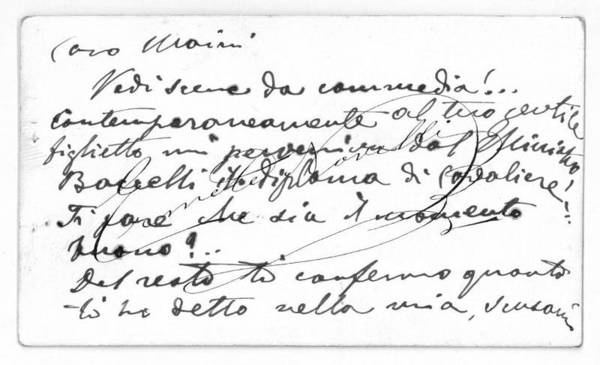 Caro Maini
Vedi scene da commedia!...
Contemporaneamente al tuo gentile
biglietto mi perveniva dal Ministro
Baccelli il diploma di Cavaliere!
Ti pare che sia il momento
buono?..
Del resto ti confermo quanto
ti ho detto nella mia, scusami